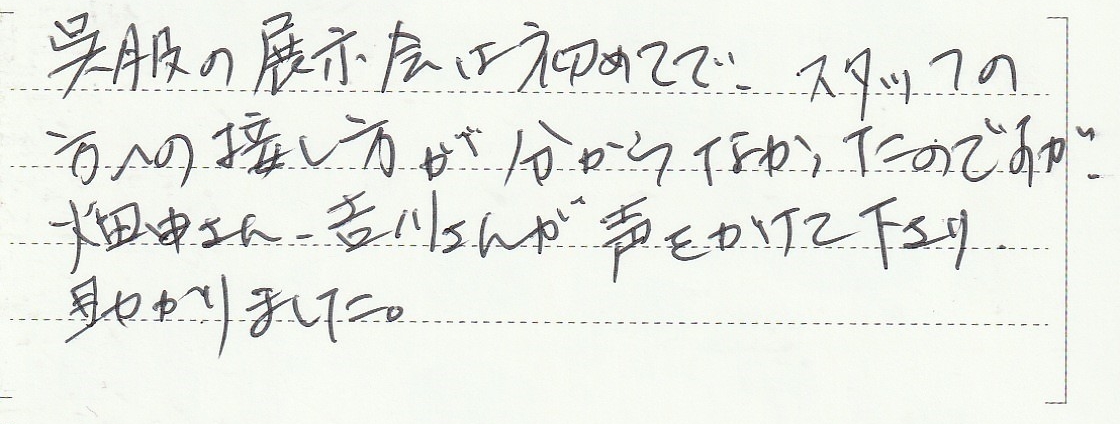 呉服の展示会は初めてで、スタッフの
方への接し方が分からなかったのですが、
畑中さん、吉川さんが声をかけて下さり、
助かりました。